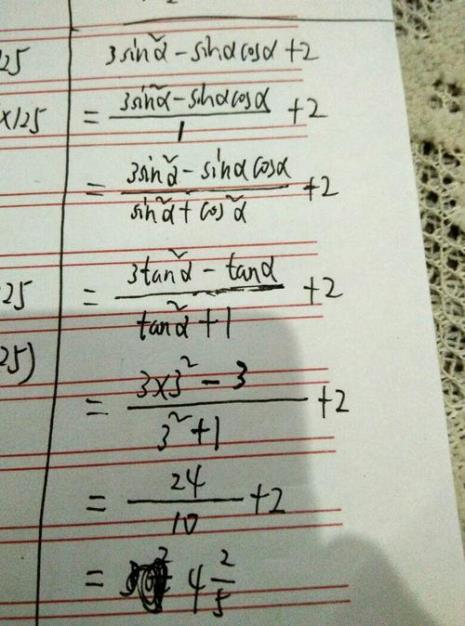 125
×125
25
25)
3sin²α - sinαcosα + 2
= (3sin²α - sinαcosα)/1 + 2
= (3sin²α - sinαcosα)/(sin²α + cos²α) + 2
= (3tan²α - tanα)/(tan²α + 1) + 2
= (3×3² - 3)/(3² + 1) + 2
= 24/10 + 2
= 4 2/5